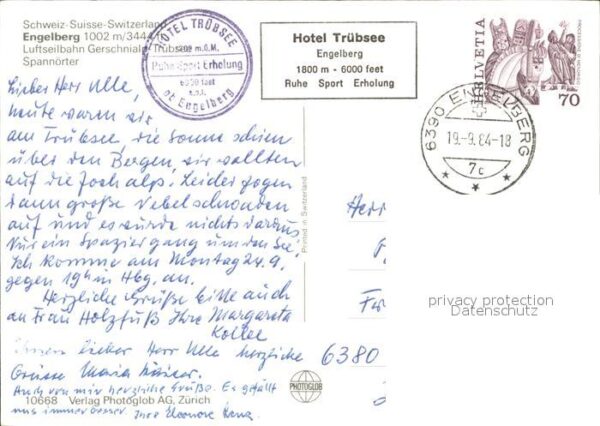 Schweiz-Suisse-Switzerland
Engelberg 1002 m/3444 ft
Luftseilbahn Gerschnialp-Trübsee
Spannörter
HOTEL TRÜBSEE
1800 m.ü.M.
Ruhe Sport Erholung
6000 feet
ob Engelberg
Hotel Trübsee
Engelberg
1800 m - 6000 feet
Ruhe Sport Erholung
HELVETIA
70
6390 ENGELBERG
19.-9.84-18
7c
Lieber Herr Ulle,
heute waren wir
am Trübsee, die Sonne schien
über den Bergen, wir wollten
auf die Jochalp. Leider zogen
dann große Nebelschwaden
auf und es wurde nichts daraus
Nur ein Spaziergang um den See.
Ich komme am Montag 24.9.
gegen 19h in Hbg. an.
Herzliche Grüße bitte auch
an Frau Holzfuß Ihre Margareta
Ihnen lieber Herr Ulle herzliche
Grüsse Maria
Auch von mir herzliche Grüße. Es gefällt
uns immer besser. Ihre Eleonore
Printed in Switzerland
Herr
Fr
6380
privacy protection
Datenschutz
PHOTOGLOB
10668 Verlag Photoglob AG, Zürich